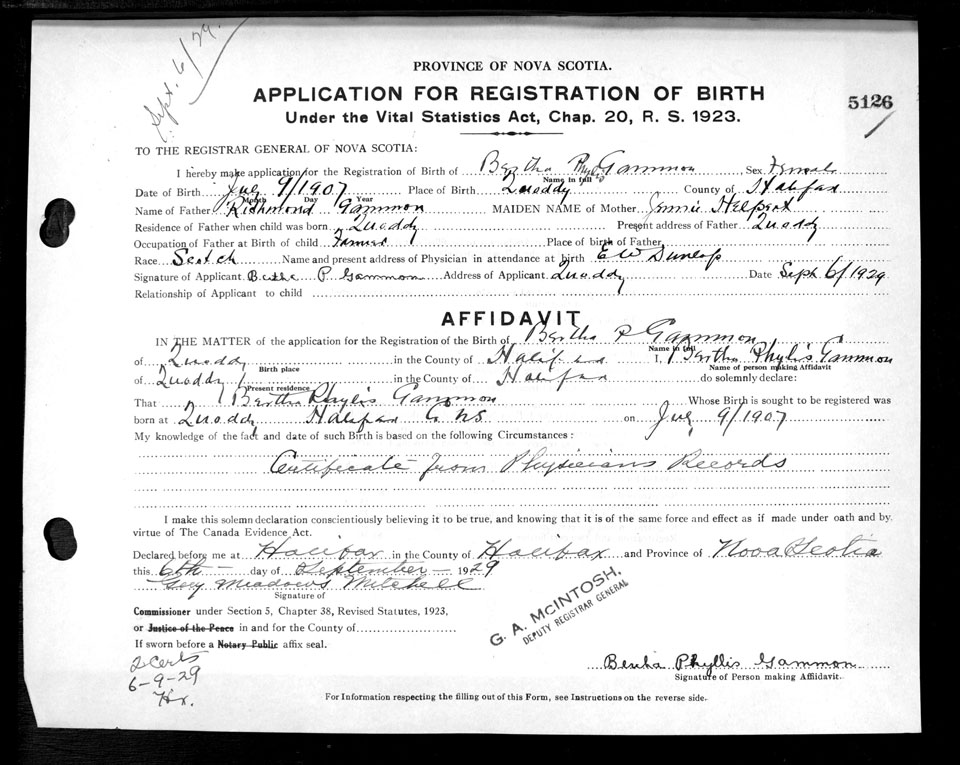 Sept. 6/29.
PROVINCE OF NOVA SCOTIA.
APPLICATION FOR REGISTRATION OF BIRTH
5126
Under the Vital Statistics Act, Chap. 20, R. S. 1923.
TO THE REGISTRAR GENERAL OF NOVA SCOTIA:
I hereby make application for the Registration of Birth of Bertha Phyl. Gammon Sex Female
Name in full
Date of Birth July 9/1907 Place of Birth Quoddy County of Halifax
Month Day Year
Name of Father Richmond Gammon MAIDEN NAME of Mother Jennie
Residence of Father when child was born Quoddy Present address of Father Quoddy
Occupation of Father at Birth of child Farmer Place of birth of Father
Race Scotch Name and present address of Physician in attendance at birth E W Dunlop
Signature of Applicant Bertha P. Gammon Address of Applicant Quoddy Date Sept 6/1929
Relationship of Applicant to child
AFFIDAVIT
IN THE MATTER of the application for the Registration of the Birth of Bertha P Gammon
Name in full
of Quoddy in the County of Halifax I, Bertha Phylis Gammon
Birth place Name of person making Affidavit
of Quoddy in the County of Halifax do solemnly declare:
Present residence
That Bertha Phylis Gammon Whose Birth is sought to be registered was
born at Quoddy Halifax Co NS on July 9/1907
My knowledge of the fact and date of such Birth is based on the following Circumstances:
Certificate from Physicians Records
I make this solemn declaration conscientiously believing it to be true, and knowing that it is of the same force and effect as if made under oath and by
virtue of The Canada Evidence Act.
Declared before me at Halifax in the County of Halifax and Province of Nova Scotia
this 6th day of September 1929
Guy Meadows Mitchell
Signature of
G. A. McINTOSH,
DEPUTY REGISTRAR GENERAL
Commissioner under Section 5, Chapter 38, Revised Statutes, 1923,
or Justice of the Peace in and for the County of
If sworn before a Notary Public affix seal.
2 Certs
6-9-29
Hx.
Bertha Phyllis Gammon
Signature of Person making Affidavit.
For Information respecting the filling out of this Form, see Instructions on the reverse side.